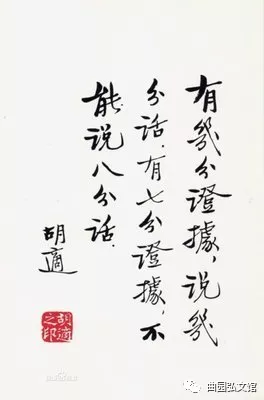 有幾分證據，说幾
分话．有七分證據，不
能说八分话．
胡適
胡適
之印
曲园弘文馆